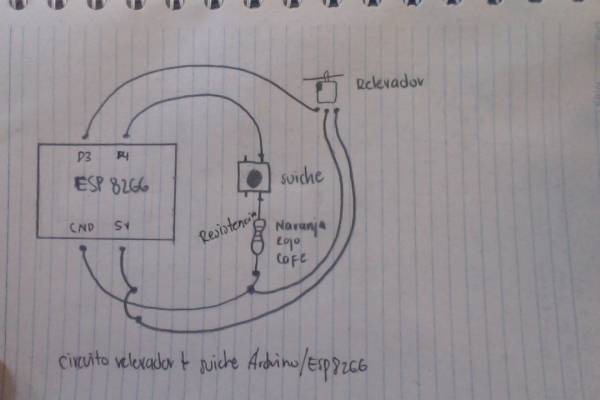 Relevador
D3 D4
ESP 8266
GND 5V
suiche
Resistencia
Naranja
rojo
cafe
circuito relevador + suiche Arduino/Esp8266